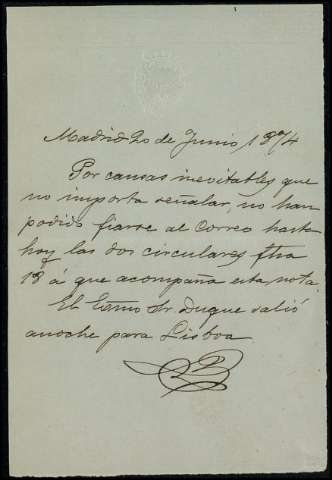 Madrid 20 de Junio 1874
Por causas inevitables que
no importa señalar, no han
podido fiarse al Correo hasta
hoy las dos circulares fha
18 á que acompaña esta nota.
El Exmo Sr. Duque salió
anoche para Lisboa